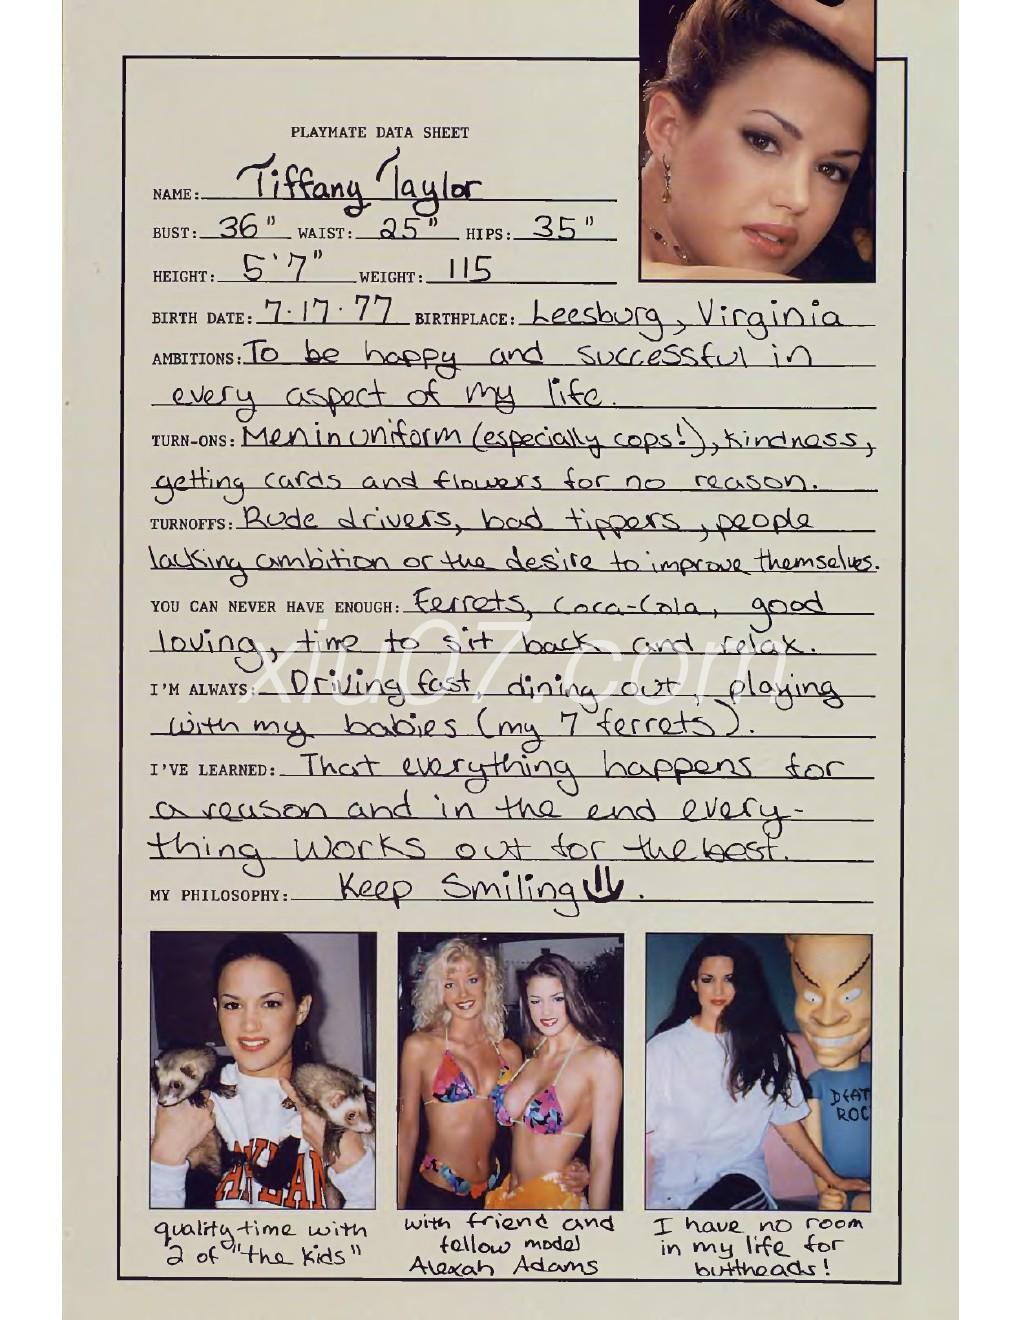 PLAYMATE DATA SHEET
NAME: Tiffany Taylor
BUST: 36" WAIST: 25" HIPS: 35"
HEIGHT: 5'7" WEIGHT: 115
BIRTH DATE: 7·17·77 BIRTHPLACE: Leesburg, Virginia
AMBITIONS: To be happy and successful in
every aspect of my life.
TURN-ONS: Men in uniform (especially cops!), kindness,
getting cards and flowers for no reason.
TURNOFFS: Rude drivers, bad tippers, people
lacking ambition or the desire to improve themselves.
YOU CAN NEVER HAVE ENOUGH: Ferrets, Coca-Cola, good
loving, time to sit back and relax.
xiu07.com
I'M ALWAYS: Driving fast, dining out, playing
with my babies (my 7 ferrets).
I'VE LEARNED: That everything happens for
a reason and in the end every-
thing works out for the best.
MY PHILOSOPHY: Keep Smiling.
DEAT
ROC
quality time with
2 of "the kids"
with friend and
fellow model
Alexah Adams
I have no room
in my life for
buttheads!